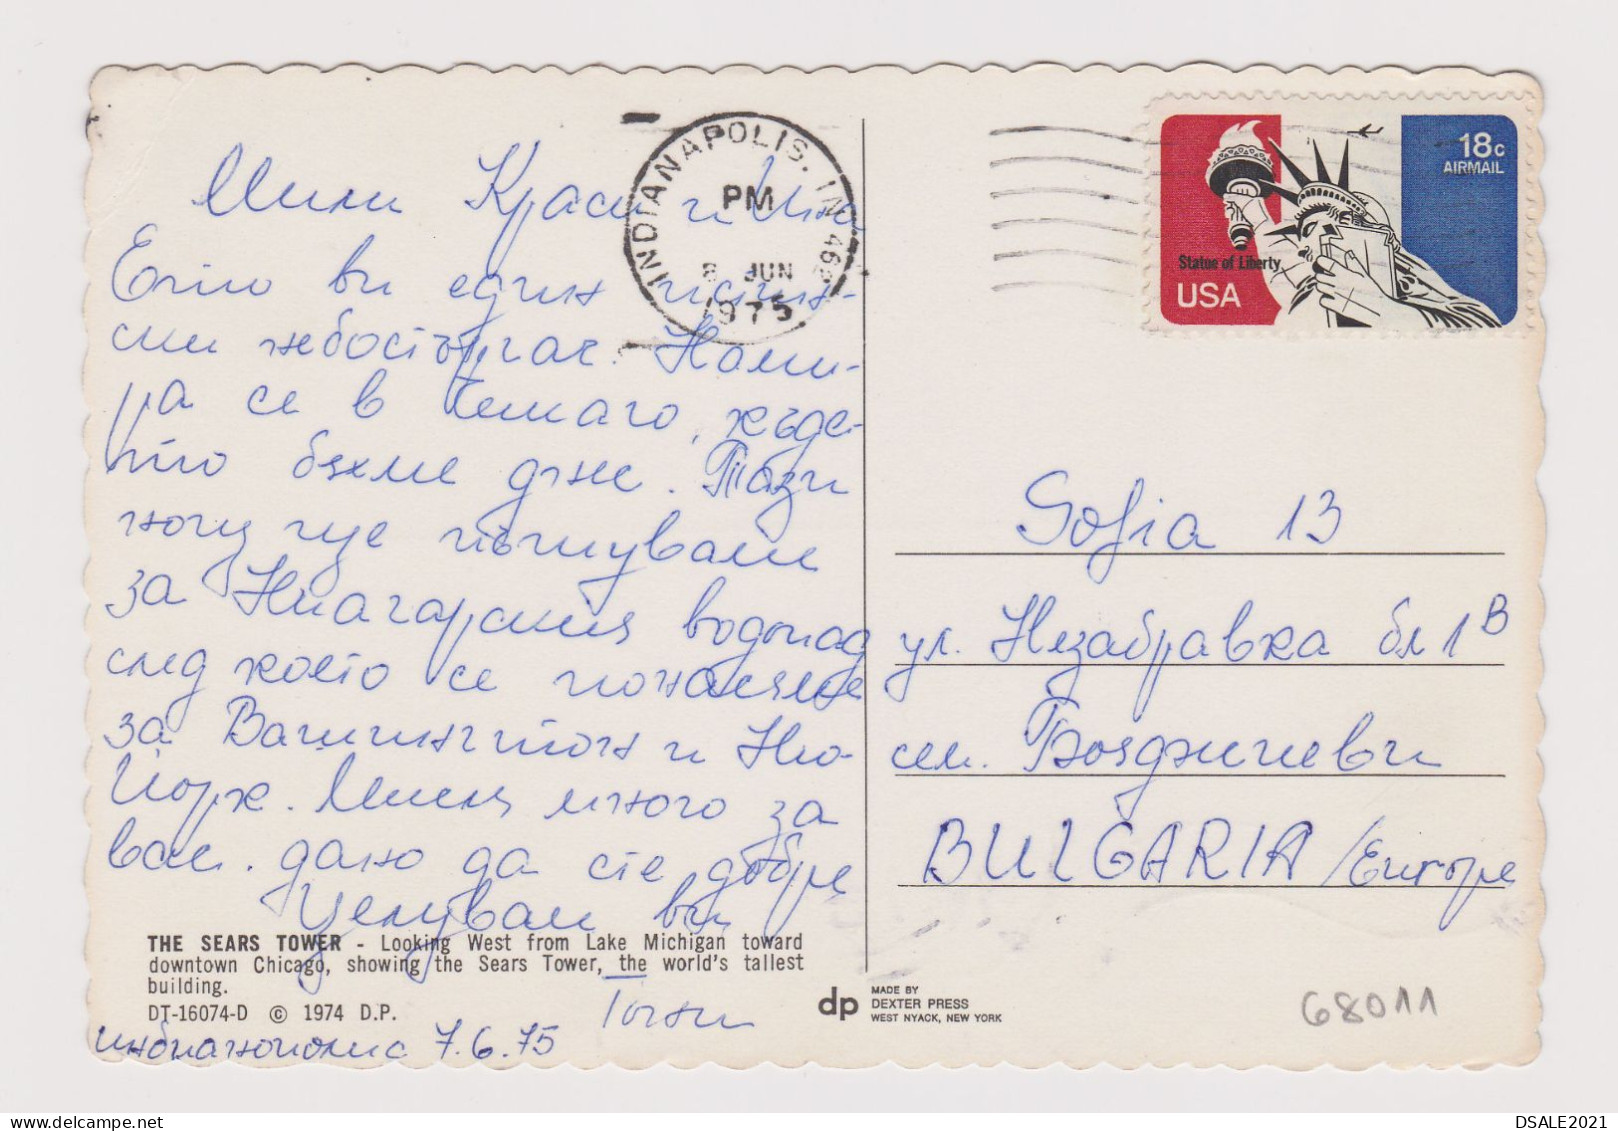 Мили Краси и Ина
Ето ви един истин-
ски небостъргач. Нами-
ра се в Чикаго, къде-
то бяхме днес. Тази
нощ ще пътуваме
за Ниагарския водопад
след което се
за Вашингтон и Ню-
Йорк. Мисля много за
вас. дано да сте добре
Целувам ви
Тони
индианополис 7.6.75
THE SEARS TOWER - Looking West from Lake Michigan toward
downtown Chicago, showing the Sears Tower, the world's tallest
building.
DT-16074-D © 1974 D.P.
dp
MADE BY
DEXTER PRESS
WEST NYACK, NEW YORK
INDIANAPOLIS, IN
PM
8 JUN
1975
18c
AIRMAIL
Statue of Liberty
USA
Sofia 13
ул. Незабравка бл 1В
сем. Бояджиеви
BULGARIA /Europe
68011
DSALE2021